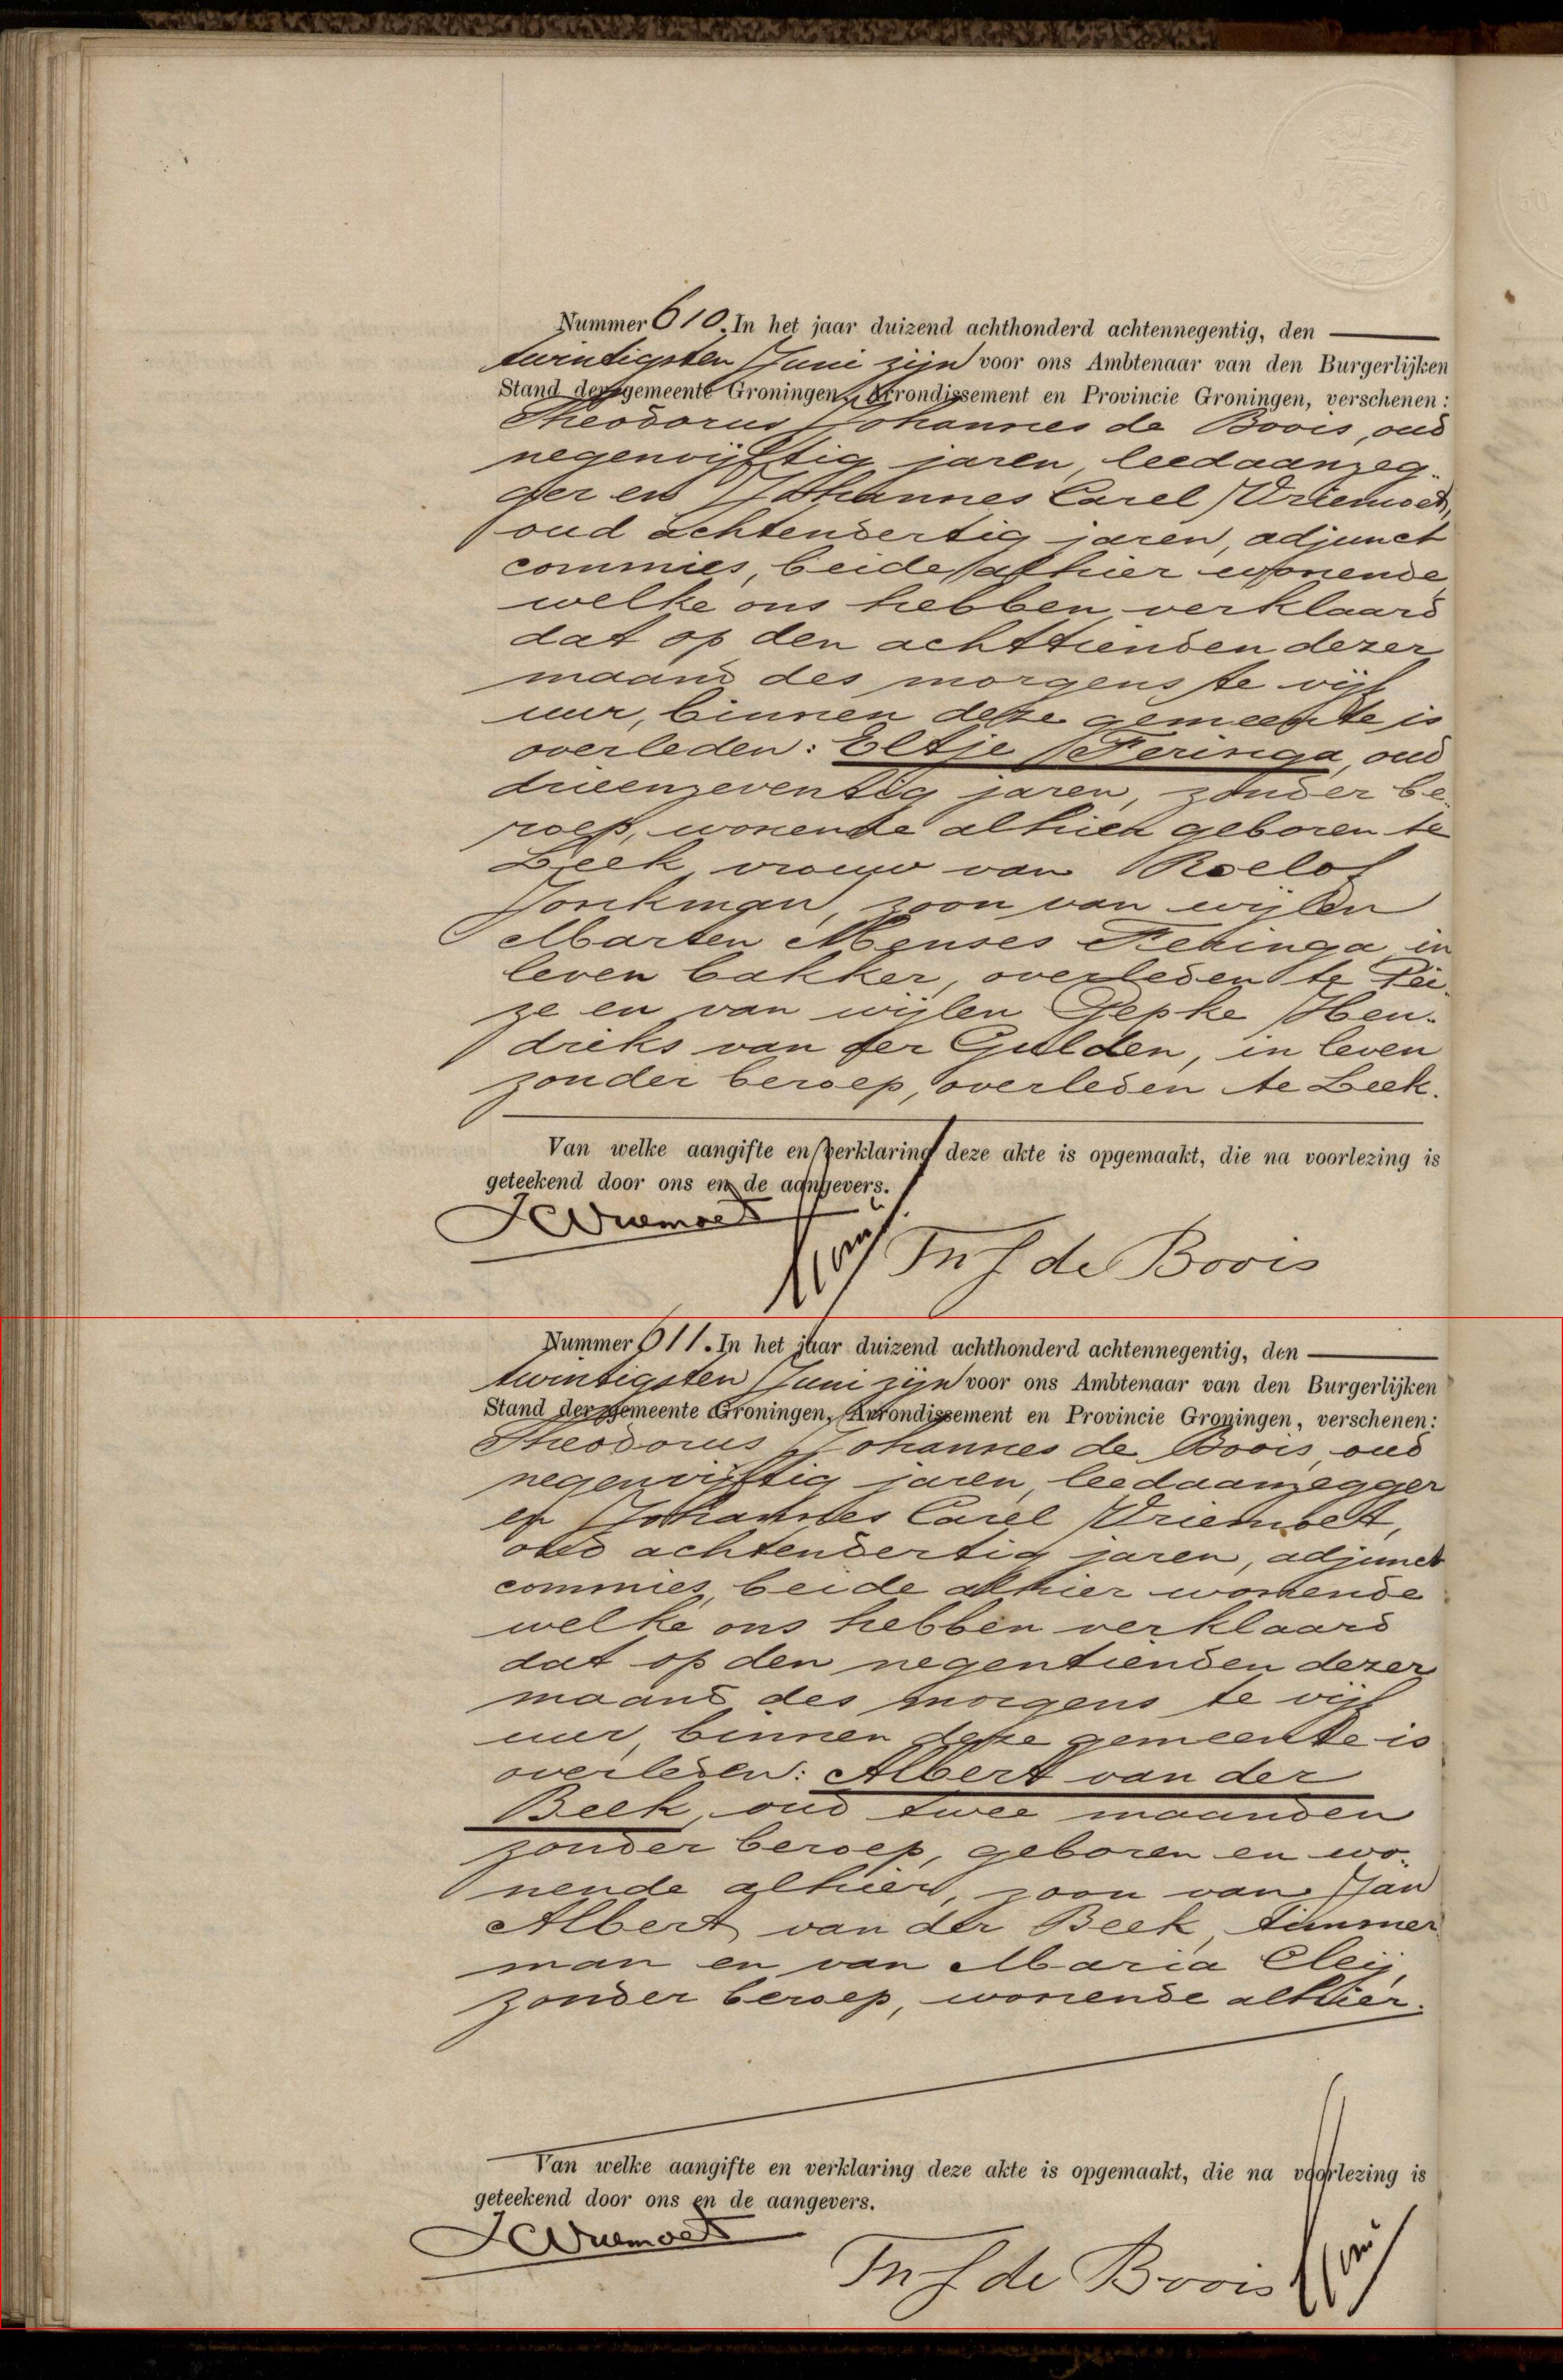 Nummer 610. In het jaar duizend achthonderd achtennegentig, den
twintigsten Juni zijn voor ons Ambtenaar van den Burgerlijken
Stand der gemeente Groningen, Arrondissement en Provincie Groningen, verschenen:
Theodorus Johannes de Boois, oud
negenvijftig jaren, leedaanzeg-
ger en Johannes Carel Vriemoet,
oud achtendertig jaren, adjunct
commies, beide alhier wonende
welke ons hebben verklaard
dat op den achttienden dezer
maand des morgens te vijf
uur, binnen deze gemeente is
overleden: Eltje Feringa, oud
drieenzeventig jaren, zonder be-
roep, wonende alhier geboren te
Leek, vrouw van Roelof
Jonkman, zoon van wijlen
Marten Menses Feringa, in
leven bakker, overleden te Pei-
ze en van wijlen Pepke Hen-
driks van der Gulden, in leven
zonder beroep, overleden te Leek.
Van welke aangifte en verklaring deze akte is opgemaakt, die na voorlezing is
geteekend door ons en de aangevers.
JCVriemoet
Th J de Boois
Nummer 611. In het jaar duizend achthonderd achtennegentig, den
twintigsten Juni zijn voor ons Ambtenaar van den Burgerlijken
Stand der gemeente Groningen, Arrondissement en Provincie Groningen, verschenen:
Theodorus Johannes de Boois, oud
negenvijftig jaren, leedaanzegger
en Johannes Carel Vriemoet,
oud achtendertig jaren, adjunct
commies, beide alhier wonende
welke ons hebben verklaard
dat op den negentienden dezer
maand des morgens te vijf
uur, binnen deze gemeente is
overleden: Albert van der
Beek, oud twee maanden
zonder beroep, geboren en wo-
nende alhier, zoon van Jan
Albert van der Beek, timmer
man en van Maria Cleij,
zonder beroep, wonende alhier.
Van welke aangifte en verklaring deze akte is opgemaakt, die na voorlezing is
geteekend door ons en de aangevers.
JCVriemoet
Th J de Boois